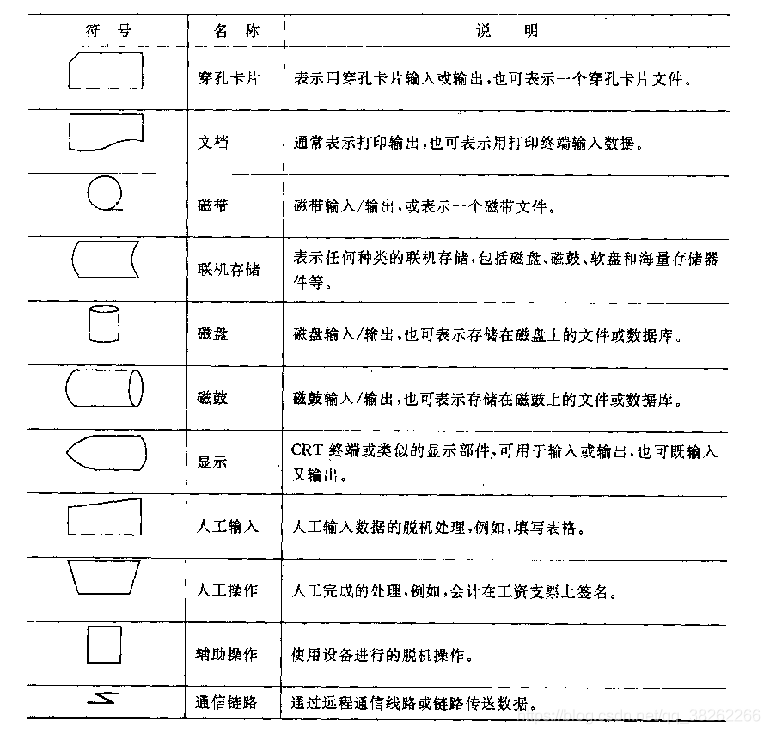 符 号 名 称 说 明
穿孔卡片 表示用穿孔卡片输入或输出,也可表示一个穿孔卡片文件。
文档 通常表示打印输出,也可表示用打印终端输入数据。
磁带 磁带输入/输出,或表示一个磁带文件。
联机存储 表示任何种类的联机存储,包括磁盘、磁鼓、软盘和海量存储器
件等。
磁盘 磁盘输入/输出,也可表示存储在磁盘上的文件或数据库。
磁鼓 磁鼓输入/输出,也可表示存储在磁鼓上的文件或数据库。
显示 CRT 终端或类似的显示部件,可用于输入或输出,也可既输入
又输出。
人工输入 人工输入数据的脱机处理,例如,填写表格。
人工操作 人工完成的处理,例如,会计在工资支票上签名。
辅助操作 使用设备进行的脱机操作。
通信链路 通过远程通信线路或链路传送数据。
https://blog.csdn.net/qq_38262266